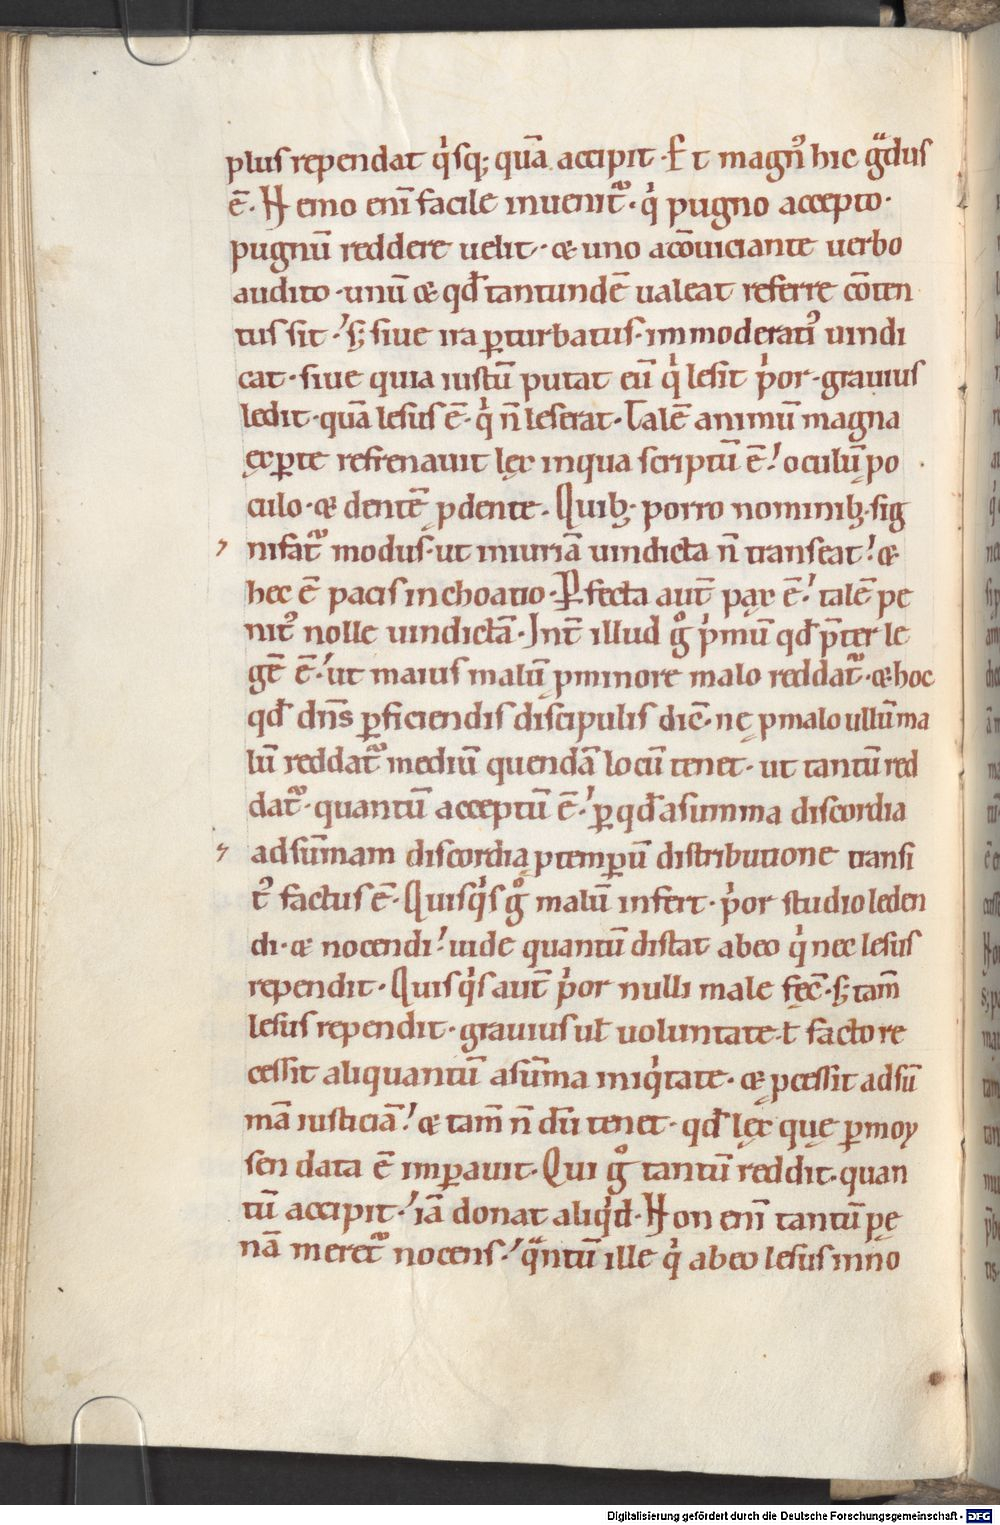 plus rependat q̇sq; quā accipit. Et magn᷒ hic gͣdus
ē. Nemo enī facile inuenit᷑. q̇ pugno accepto.
pugnū reddere uelit. & uno acōuiciante uerbo
audito. unū & qđ tantundē ualeat referre cōten
tus sit. s; siue ira ꝑturbatus. immoderati᷒ uindi
cat. siue quia iustū putat eū q̇ lesit p̍or. grauius
ledit. quā lesus ē. q̇ n̄ leserat. Talē animū magna
ęxꝑte refrenauit lęx inqua scriptū ē! oculū po
culo. & dentē pdente. Quib; porro nominib; sig
nifat᷑ modus. ut iniuriā uindicta n̄ transeat! &
hec ē pacis inchoatio. Ꝑfecta aut̄ pax ē! talē pe
nit᷒ nolle uindictā. Int̄ illud gͦ p̍mū qđ p̄ter le
gē ē! ut maius malū pminore malo reddat᷑. & hoc
qđ dn̄s ꝑficiendis discipulis dic̄. ne pmalo ullū ma
lū reddat᷑ mediū quendā locū tenet. ut tantū red
dat᷑. quantū acceptū ē! ꝑ qđ asumma discordia
adsūmam discordia ptemꝑū distributione transi
t᷒ factus ē. Quisq̇s gͦ malū infert. p̍or studio leden
di. & nocendi! uide quantū distat abeo q̇ nec lesus
rependit. Quisq̇s aut̄ p̍or nulli male fęc̄. s; tam̄
lesus rependit. grauius ul̄ uoluntate. ł facto re
cessit aliquantū asūma iniq̇tate. & pcessit adsū
mā iusticiā! & tam̄ n̄ dū tenet. qđ lęx quę ꝑmoy
sen data ē imꝑauit. Qui gͦ tantū reddit. quan
tū accipit! iā donat aliq̇d. Non enī tantū pę
nā meret᷑ nocens! qͣntū ille q̇ abeo lesus inno
Digitalisierung gefördert durch die Deutsche Forschungsgemeinschaft - DFG